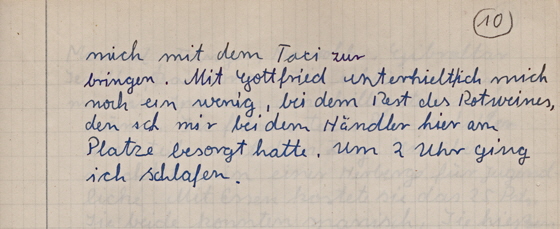 10
mich mit dem Taxi zur
bringen. Mit Gottfried unterhielt ich mich
noch ein wenig, bei dem Rest des Rotweines,
den ich mir bei dem Händler hier am
Platze besorgt hatte. Um 2 Uhr ging
ich schlafen.